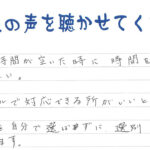 の声を聴かせてく
時間が空いた時に 時間を
い。
ルで対応できる所がいいと
を自分で選ばずに 選別
ます。